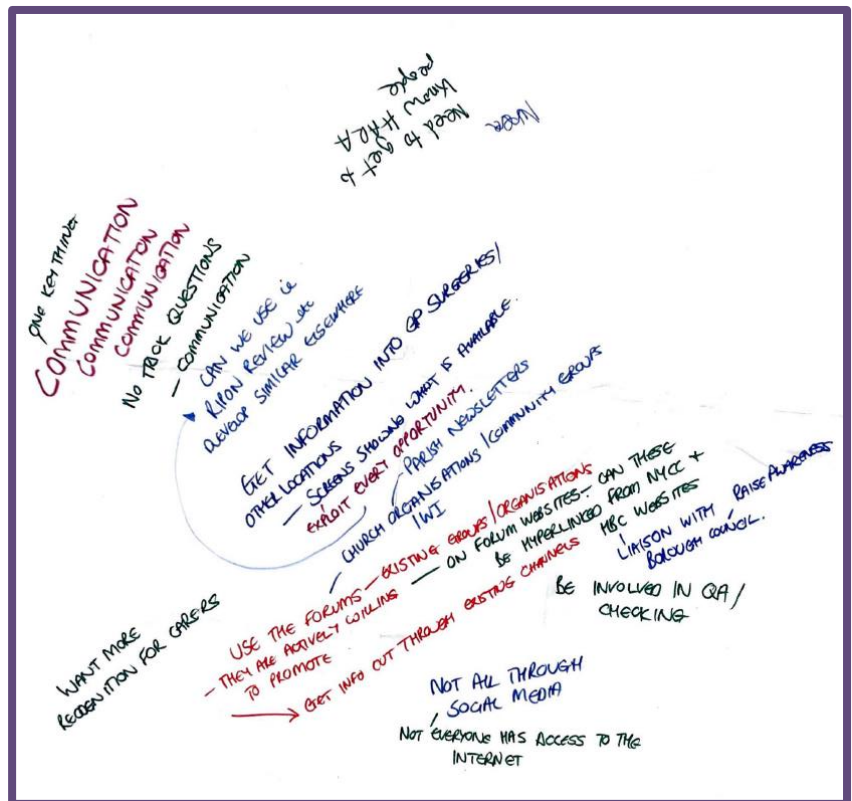 Need to get to
know HARA
people
ONE KEY THING
COMMUNICATION
COMMUNICATION
COMMUNICATION
NO TRICK QUESTIONS
— COMMUNICATION
CAN WE USE ie
RIPON REVIEW etc
DEVELOP SIMILAR ELSEWHERE
GET INFORMATION INTO GP SURGERIES/
OTHER LOCATIONS
— SCREENS SHOWING WHAT IS AVAILABLE.
EXPLOIT EVERY OPPORTUNITY.
PARISH NEWSLETTERS
CHURCH ORGANISATIONS/COMMUNITY GROUPS
/WI
USE THE FORUMS — EXISTING GROUPS/ORGANISATIONS
— THEY ARE ACTIVELY WILLING
TO PROMOTE
— ON FORUM WEBSITES — CAN THESE
BE HYPERLINKED FROM NYCC +
HBC WEBSITES
→ GET INFO OUT THROUGH EXISTING CHANNELS
RAISE AWARENESS
LIAISON WITH
BOROUGH COUNCIL.
BE INVOLVED IN QA/
CHECKING
WANT MORE
RECOGNITION FOR CARERS
NOT ALL THROUGH
SOCIAL MEDIA
NOT EVERYONE HAS ACCESS TO THE
INTERNET